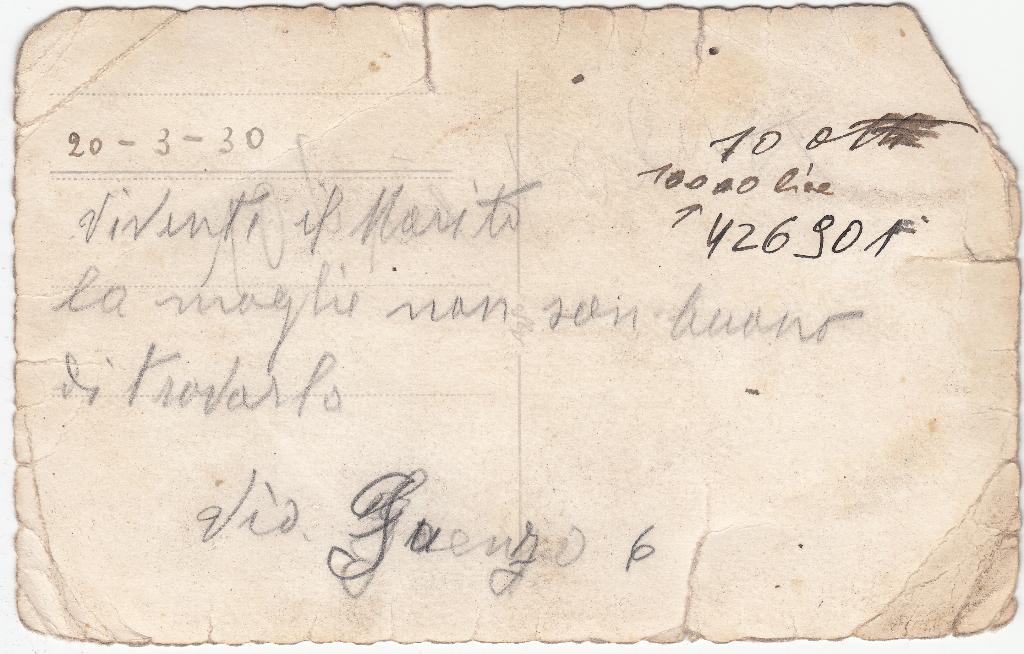 20-3-30
Vivente il Marito
la moglie non son buono
di trovarlo
Via. Faenza 6
10 ott
10000 lire
426901